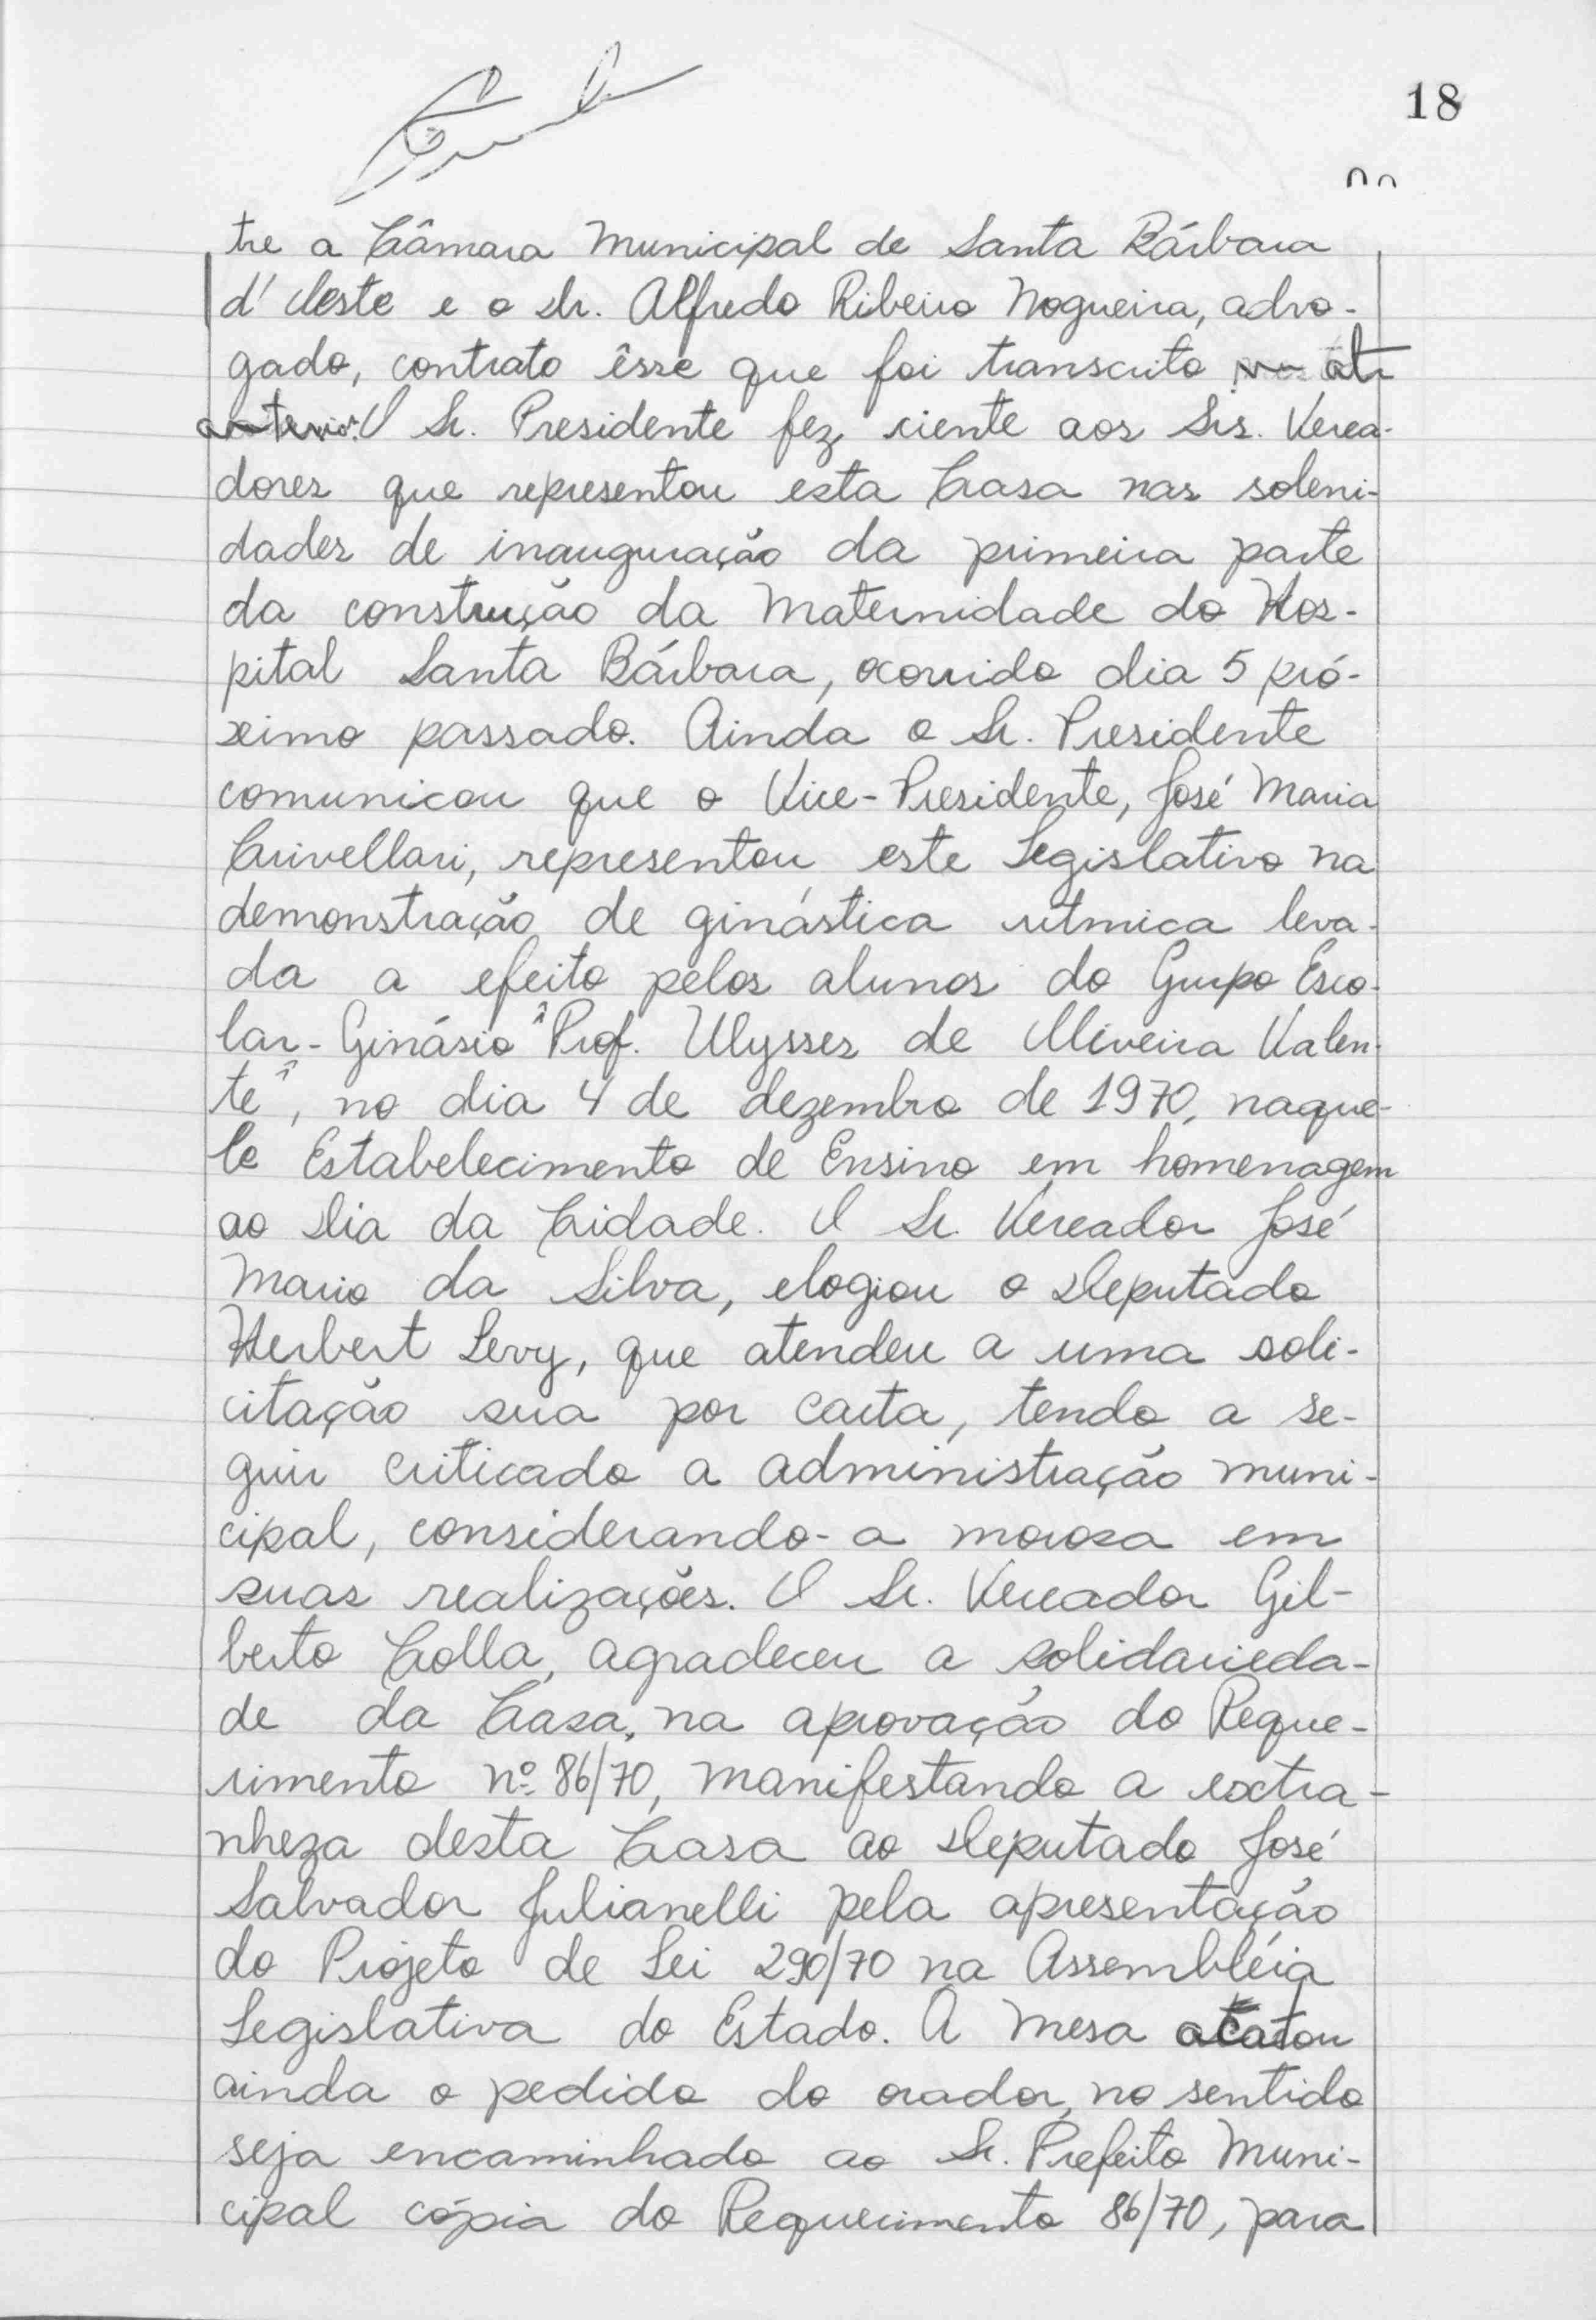 18
tre a Câmara Municipal de Santa Bárbara
d'Oeste e o Dr. Alfredo Ribeiro Nogueira, advo-
gado, contrato êsse que foi transcrito na ata
anterior. O Sr. Presidente fez ciente aos Srs. Verea-
dores que representou esta Casa nas soleni-
dades de inauguração da primeira parte
da construção da Maternidade do Hos-
pital Santa Bárbara, ocorrido dia 5 pró-
ximo passado. Ainda o Sr. Presidente
comunicou que o Vice-Presidente, José Maria
Crivellari, representou este Legislativo na
demonstração de ginástica rítmica leva-
da a efeito pelos alunos do Grupo Esco-
lar-Ginásio "Prof. Ulysses de Oliveira Valen-
te", no dia 4 de dezembro de 1970, naque-
le Estabelecimento de Ensino em homenagem
ao Dia da Cidade. O Sr. Vereador José
Mario da Silva, elogiou o Deputado
Herbert Levy, que atendeu a uma soli-
citação sua por carta, tendo a se-
guir criticado a administração muni-
cipal, considerando-a morosa em
suas realizações. O Sr. Vereador Gil-
berto Colla, agradeceu a solidarieda-
de da Casa, na aprovação do Reque-
rimento nº 86/70, manifestando a extra-
nheza desta Casa ao Deputado José
Salvador Julianelli pela apresentação
do Projeto de Lei 290/70 na Assembléia
Legislativa do Estado. A Mesa acatou
ainda o pedido do orador, no sentido
seja encaminhado ao Sr. Prefeito Muni-
cipal cópia do Requerimento 86/70, para